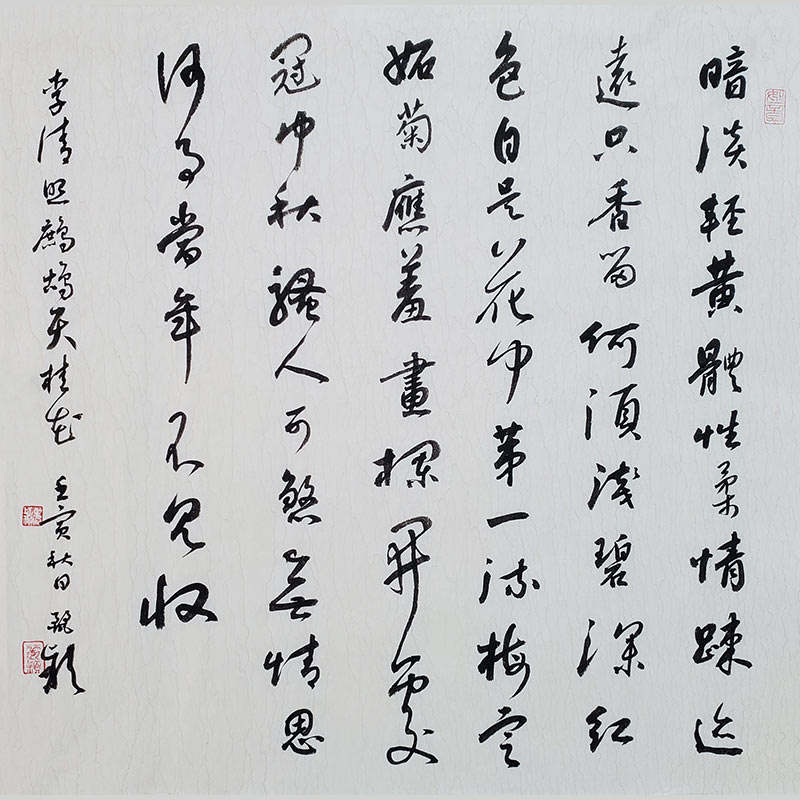 暗淡輕黃體性柔情踈迹
遠只香留何須淺碧深紅
色自是花中第一流梅定
妬菊應羞畫欄開處
冠中秋騷人可煞無情思
何事當年不見收
李清照鷓鴣天桂花 壬寅秋日